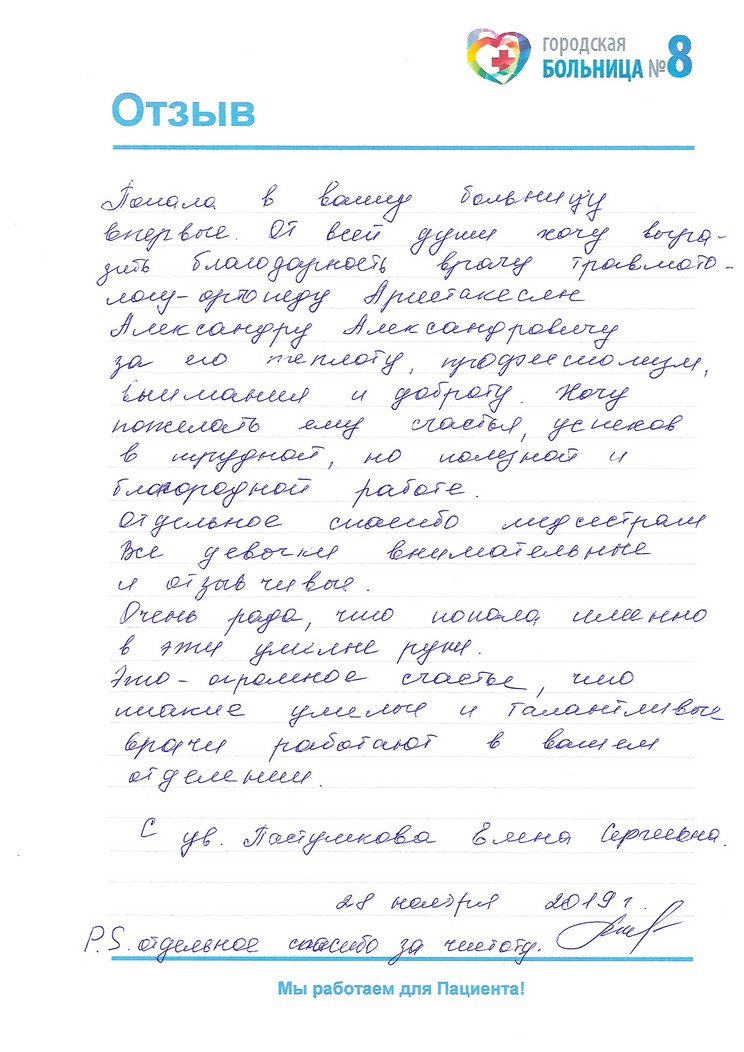 городская
БОЛЬНИЦА №8
Отзыв
Попала в вашу больницу
впервые. От всей души хочу выра-
зить благодарность врачу травмато-
логу-ортопеду Аристакесян
Александру Александровичу
за его теплоту, профессионализм,
внимания и доброту. Хочу
пожелать ему счастья, успехов
в трудной, но полезной и
благородной работе.
Отдельное спасибо медсестрам
Все девочки внимательные
и отзывчивые.
Очень рада, что попала именно
в эти умелые руки.
Это - огромное счастье, что
такие умелые и талантливые
врачи работают в вашем
отделении.
С ув. Пастушкова Елена Сергеевна.
28 ноября 2019 г.
P.S. отдельное спасибо за чистоту.
Мы работаем для Пациента!